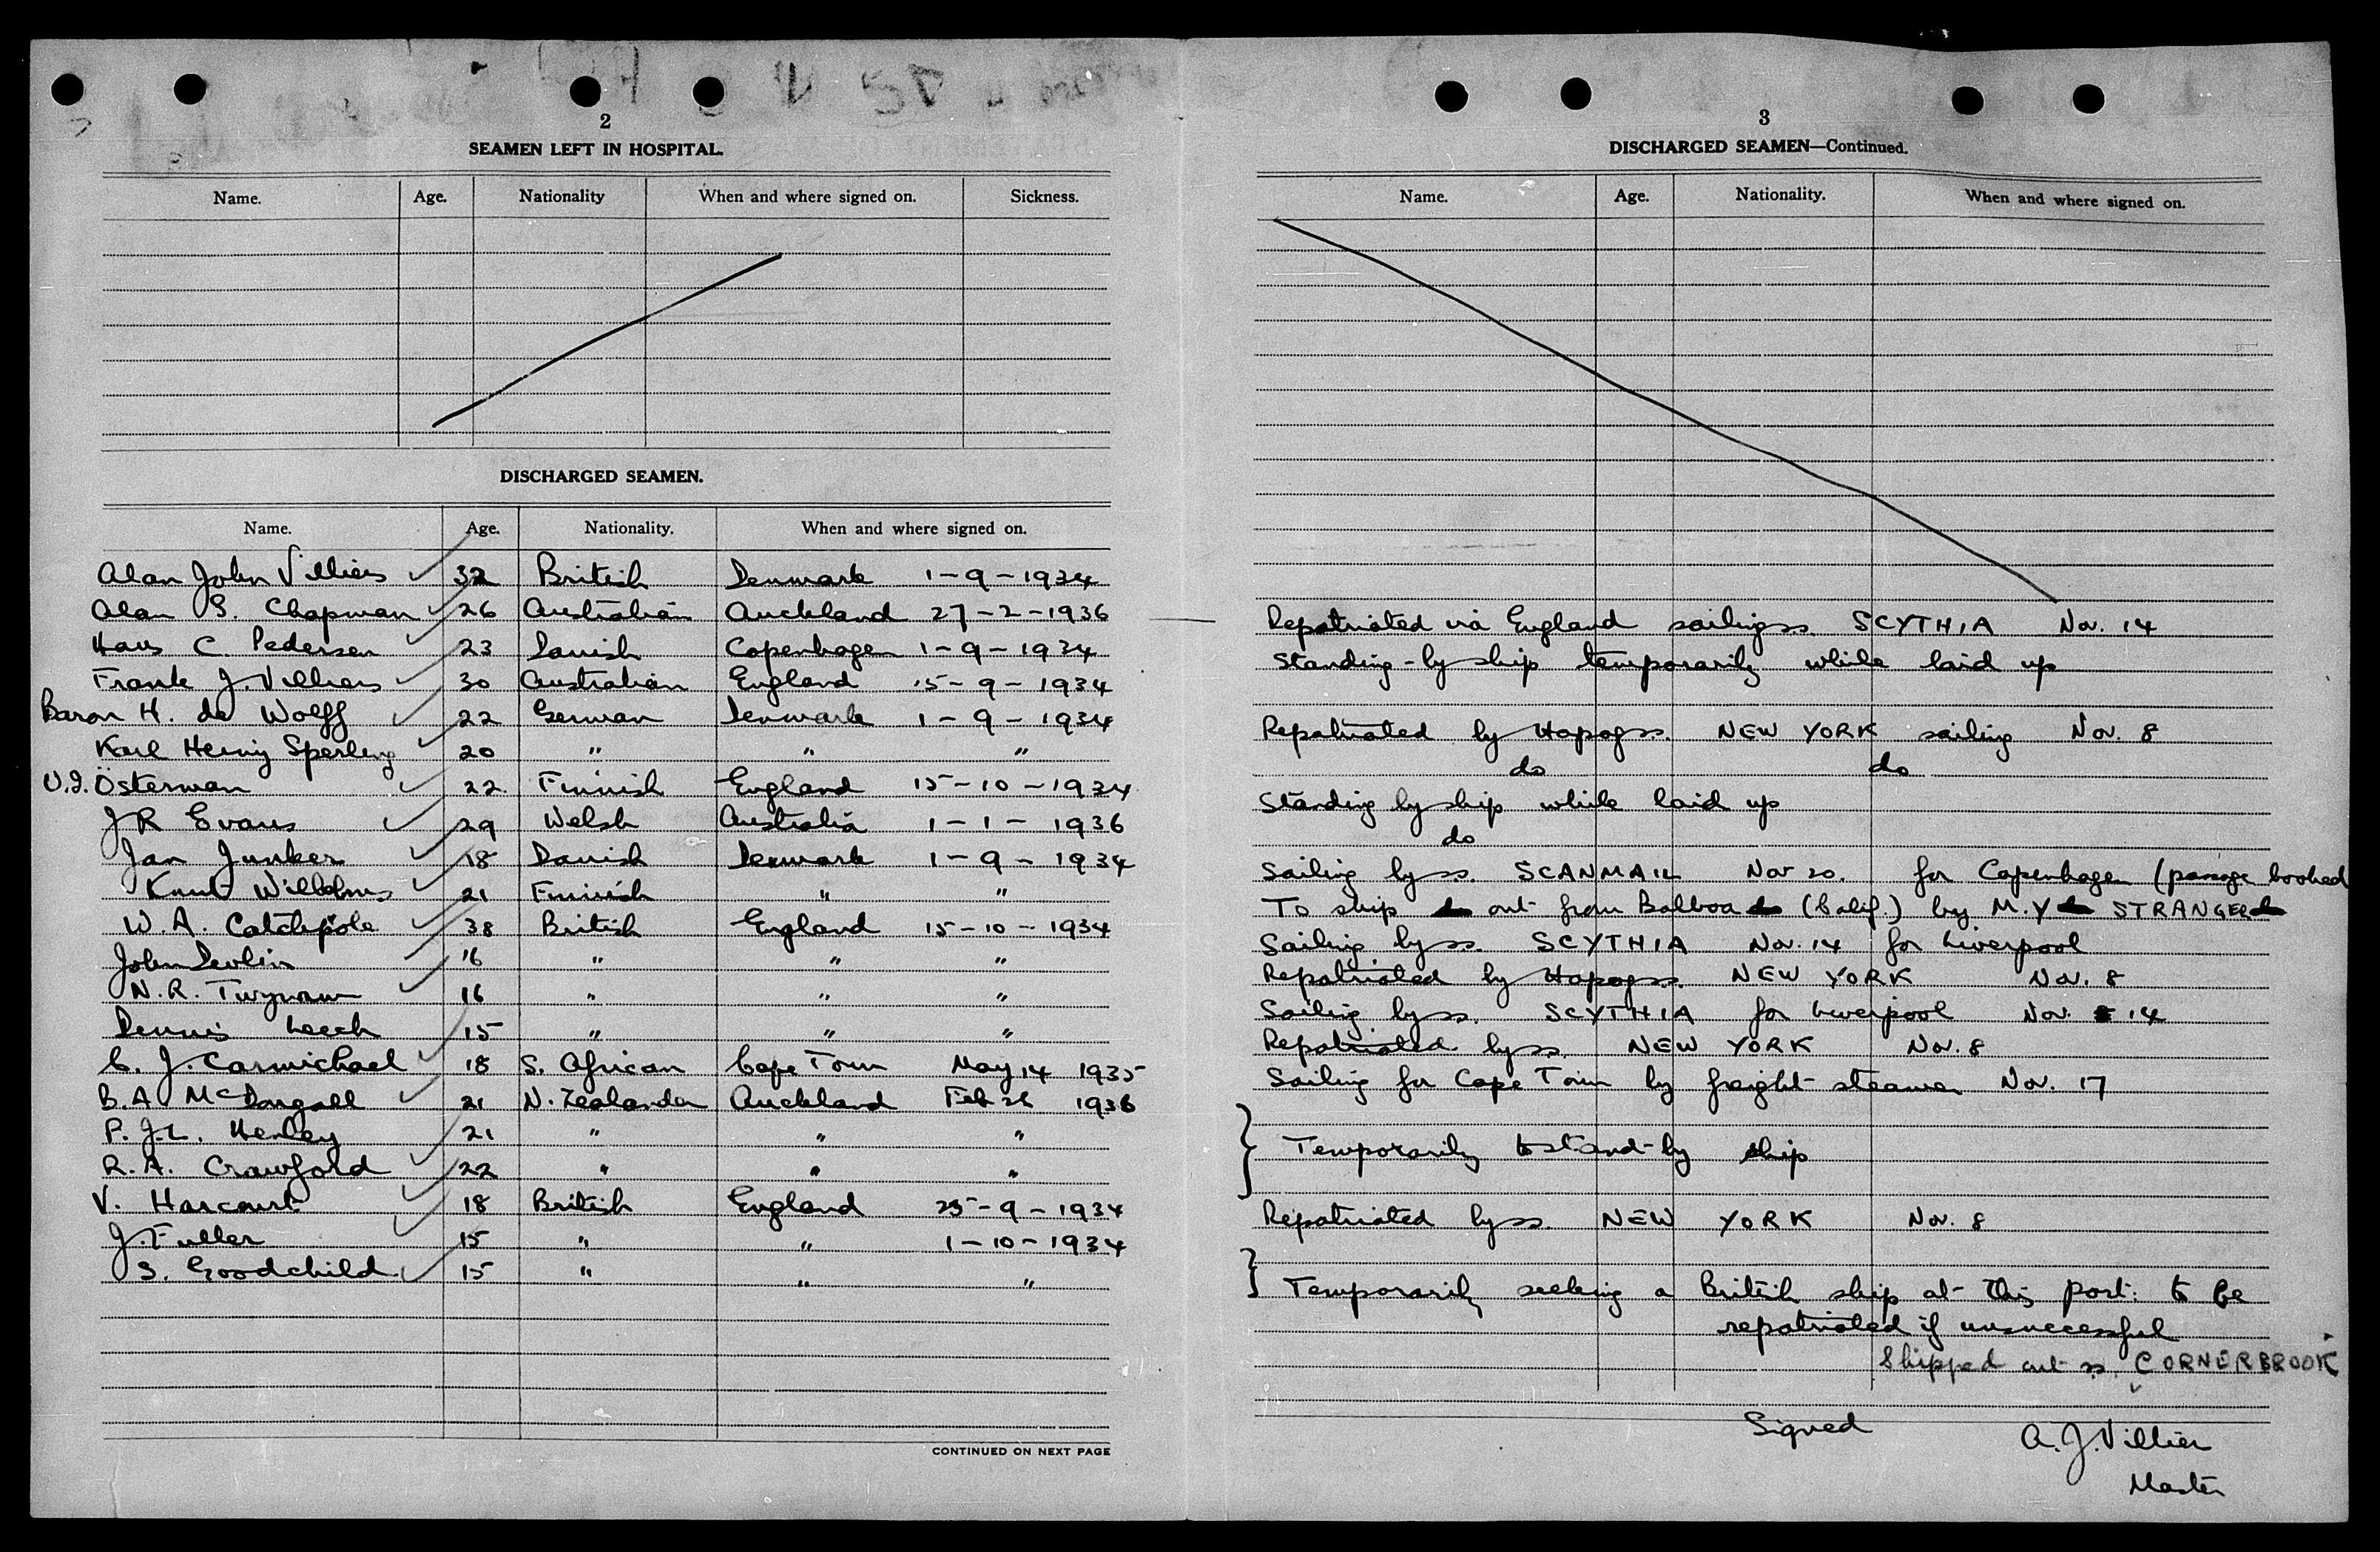 2
SEAMEN LEFT IN HOSPITAL.
Name. Age. Nationality When and where signed on. Sickness.
DISCHARGED SEAMEN.
Name. Age. Nationality. When and where signed on.
Alan John Villiers 32 British Denmark 1-9-1934
Alan S. Chapman 26 Australian Auckland 27-2-1936
Hans C. Pedersen 23 Danish Copenhagen 1-9-1934
Frank J. Villiers 30 Australian England 15-9-1934
Baron H. de Wolff 22 German Denmark 1-9-1934
Karl Sperling 20 " " "
Österman 22 Finnish England 15-10-1934
J R Evans 29 Welsh Australia 1-1-1936
Jan Junker 18 Danish Denmark 1-9-1934
Knut 21 Finnish " "
W. A. Catchpole 38 British England 15-10-1934
John Devlin 16 " " "
N. R. Twynam 16 " " "
Dennis Leech 15 " " "
C. J. Carmichael 18 S. African Cape Town May 14 1935
B. A McDougall 21 N. Zealander Auckland Feb 26 1936
P. J. L. Henley 21 " " "
R. A. Crawford 22 " " "
V. Harcourt 18 British England 25-9-1934
J. Fuller 15 " " 1-10-1934
S. Goodchild 15 " " "
CONTINUED ON NEXT PAGE
3
DISCHARGED SEAMEN—Continued.
Name. Age. Nationality. When and where signed on.
Repatriated via England sailing ss. SCYTHIA Nov. 14
Standing-by ship temporarily while laid up
Repatriated by Hapag ss. NEW YORK sailing Nov. 8
do do
Standing by ship while laid up
do
Sailing by ss. SCANMAIL Nov 20. for Copenhagen (passage booked
To ship out from Balboa (Calif.) by M.Y STRANGER
Sailing by ss. SCYTHIA Nov. 14 for Liverpool
Repatriated by Hapag ss. NEW YORK Nov. 8
Sailing by ss. SCYTHIA for Liverpool Nov. 14
Repatriated by ss. NEW YORK Nov. 8
Sailing for Cape Town by freight steamer Nov. 17
Temporarily to stand-by ship
Repatriated by ss. NEW YORK Nov. 8
Temporarily seeking a British ship at this port: to be
repatriated if unsuccessful
Shipped out ss. CORNERBROOK
Signed A. J. Villiers
Master